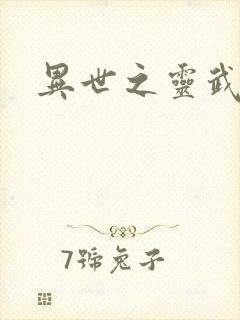 異世之靈武
7號兔子